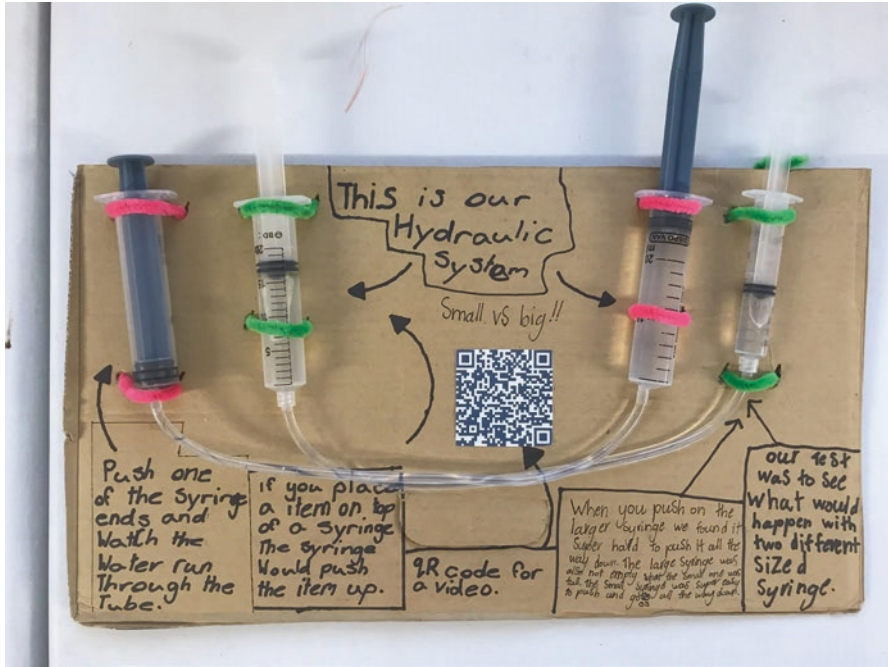 This is our
Hydraulic
System
Small vs big!!
Push one
of the Syringe
ends and
Watch the
Water run
Through the
Tube.
if you place
a item on top
of a syringe
The syringe
Would push
the item up.
QR code for
a video.
When you push on the
larger syringe we found it
Super hald to push it all the
way down. The large Syringe was
also not empty what the small one was
full. The small Syringe was Super easy
to push and goes all the way down.
our test
was to see
what would
happen with
two different
Sized
Syringe.
20
15
5
20